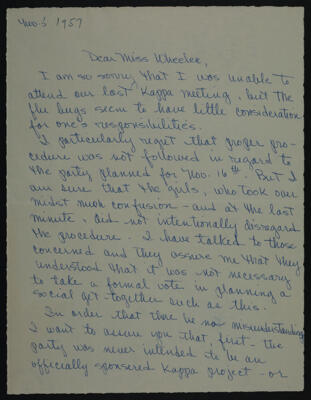 Nov. 5 1957
Dear Miss Wheeler,
I am so sorry that I was unable to
attend our last Kappa meeting, but the
flu bugs seem to have little consideration
for one's responsibilities.
I particularly regret that proper pro-
cedure was not followed in regard to
the party planned for Nov. 16th. But I
am sure that the girls, who took over
midst much confusion - and at the last
minute, did not intentionally disregard
the procedure. I have talked to those
concerned and they assure me that they
understood that it was not necessary
to take a formal vote in planning a
social get-together such as this.
In order that there be no misunderstanding,
I want to assure you that, first - the
party was never intended to be an
officially sponsered Kappa project - or